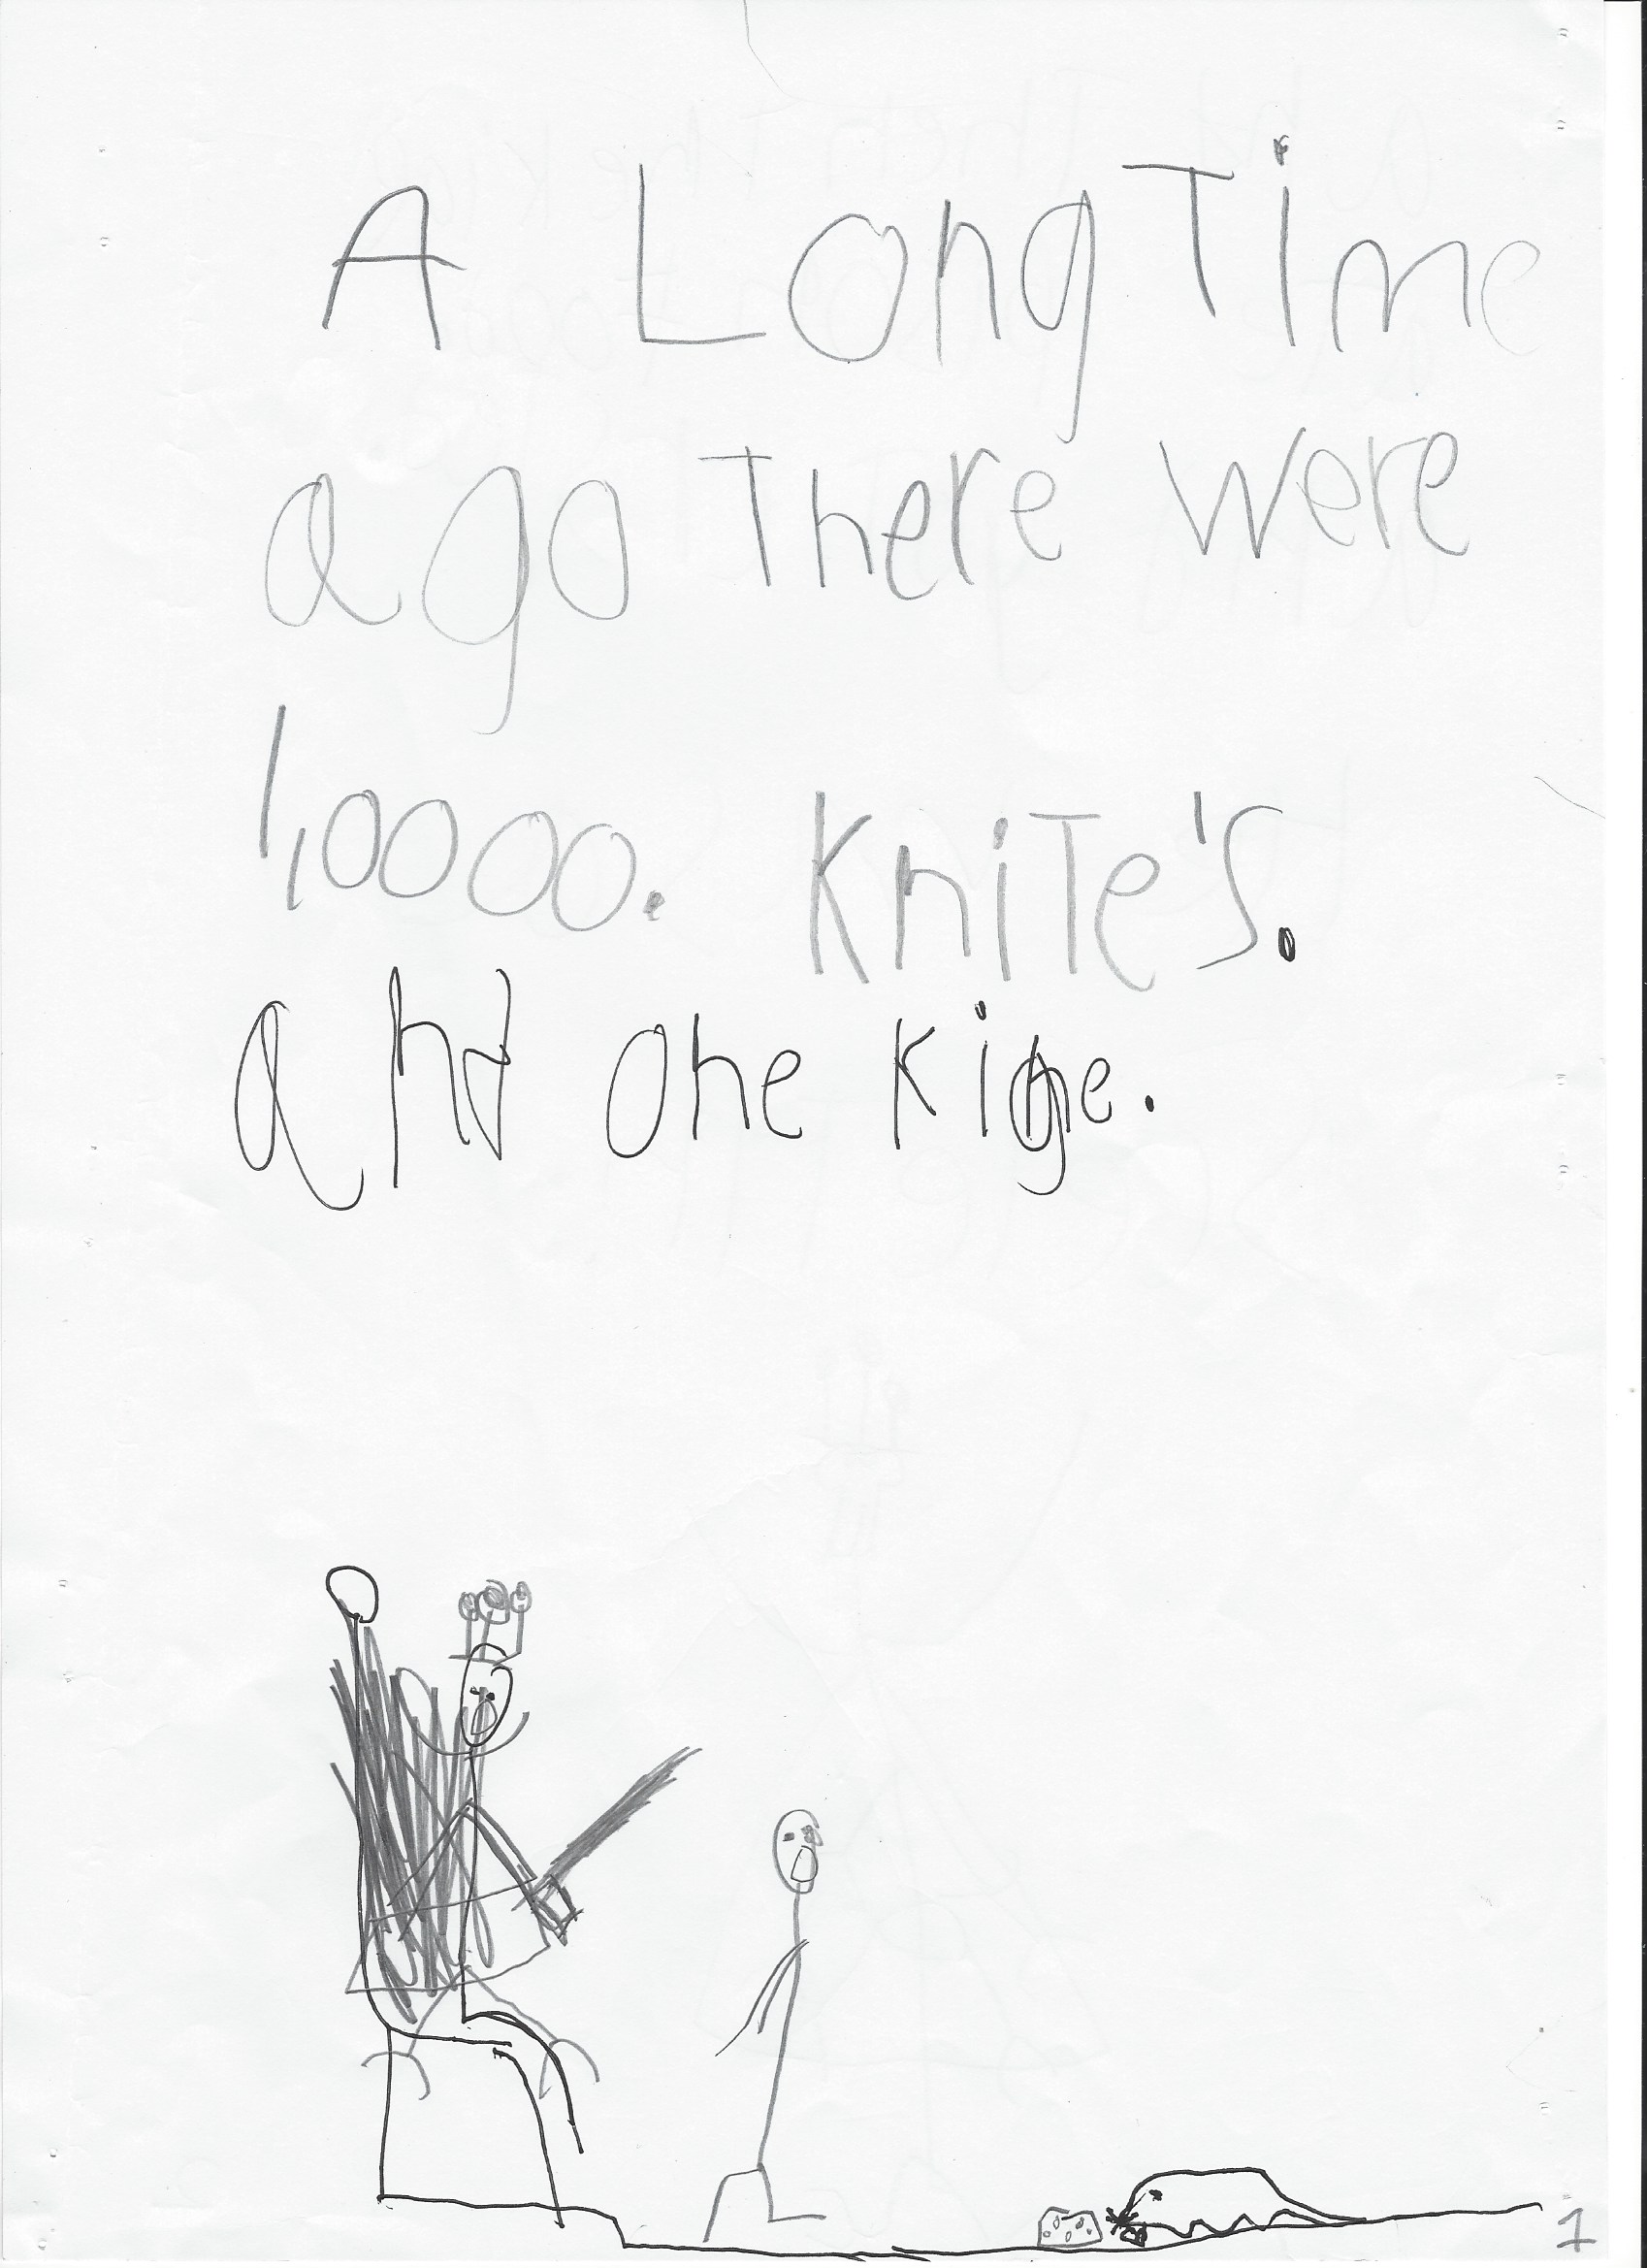 A Long Time
ago There were
1,0000. KniTe's.
and one Kigne.
1